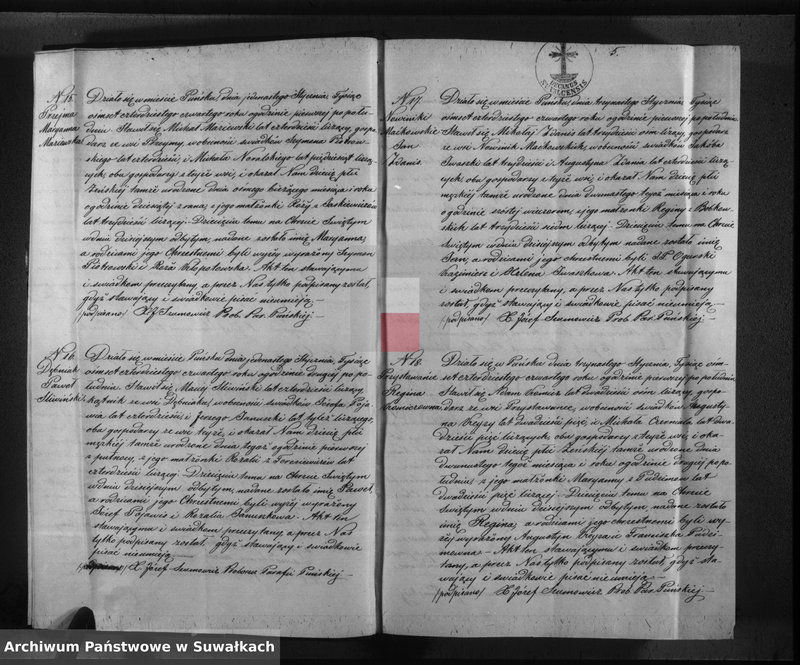 N. 15.
Przejma
Maryanna
Marcewska
Działo się w mieście Puńsku, dnia jednastego Stycznia, Tysiąc
osmset czterdziestego czwartego roku o godzinie pierwszej po połu-
dniu. Stawił się Michał Marcewski lat czterdzieści liczący, gospo-
darz ze wsi Przejmy, w obecności świadków Szymona Piotrow-
skiego lat czterdzieści i Michała Nowalskiego lat pięćdziesiąt liczą-
cych, obu gospodarzy z tejże wsi, i okazał Nam dziecię płci
żeńskiej tamże urodzone dnia ósmego bieżącego miesiąca i roku
o godzinie dziesiątej z rana, z jego małżonki Róży z Jaśkiewiczów
lat trzydzieści liczącej. Dziecięciu temu na Chrzcie Świętym
w dniu dzisiejszym odbytym, nadane zostało imię Maryanna,
a rodzicami jego Chrzestnemi byli wyżej wyrażony Szymon
Piotrowski i Róża Chłopotowska. Akt ten stawającemu
i świadkom przeczytany, a przez Nas tylko podpisany został,
gdyż stawający i świadkowie pisać nieumieją.—
(podpisano) X. Józef Szumowicz Prob. Par. Puńskiej.—
N. 16.
Dębniak
Paweł
Śliwiński
Działo się w mieście Puńsku dnia jednastego Stycznia, Tysiąc
osmset czterdziestego czwartego roku o godzinie drugiej po po-
łudniu. Stawił się Maciej Śliwiński lat czterdzieści liczący,
kątnik ze wsi Dębniaka, w obecności świadków Józefa Poja-
wia lat czterdzieści i Jerzego Januszki lat tyleż liczącego,
obu gospodarzy ze wsi tejże, i okazał Nam dziecię płci
męzkiej tamże urodzone dnia tegoż o godzinie pierwszej
z północy, z jego małżonki Rozalii z lat
czterdzieści liczącej. Dziecięciu temu na Chrzcie Świętym
w dniu dzisiejszym odbytym, nadane zostało imię Paweł,
a rodzicami jego Chrzestnemi byli wyżej wyrażony
Józef Pojawis i Rozalia Januszkowa. Akt ten
stawającemu i świadkom przeczytany, a przez Nas
tylko podpisany został, gdyż stawający i świadkowie
pisać nieumieją.
(podpisano) X. Józef Szumowicz Pleban Parafii Puńskiej.—
5.
N. 17.
Nowiniki
Maćkowskie
Jan
Zdanis
Działo się w mieście Puńsku, dnia trzynastego Stycznia, Tysiąc
osmset czterdziestego czwartego roku o godzinie pierwszej po południu.
Stawił się Mikołaj Zdanis lat trzydzieści osm liczący, gospodarz
ze wsi Nowinik Maćkowskich, w obecności świadków Jakóba
lat trzydzieści i Augustyna Zdania lat czterdzieści liczą-
cych, obu gospodarzy z tejże wsi, i okazał Nam dziecię płci
męzkiej tamże urodzone dnia dwunastego tegoż miesiąca i roku
o godzinie szóstej wieczorem, z jego małżonki Reginy z Bobkow-
skich lat trzydzieści siedm liczącej. Dziecięciu temu na Chrzcie
Świętym w dniu dzisiejszym odbytym nadane zostało imię
Jan, a rodzicami jego chrzestnemi byli
Kazimierz i Helena Iwaszkowa. Akt ten stawającemu
i świadkom przeczytany, a przez Nas tylko podpisany
został, gdyż stawający i świadkowie pisać nieumieją.—
(podpisano) X. Józef Szumowicz Prob. Par. Puńskiej.—
N. 18.
Przystawańce
Regina
Działo się w Puńsku dnia trzynastego Stycznia, Tysiąc osm-
set czterdziestego czwartego roku o godzinie pierwszej po południu.
Stawił się Adam lat dwadzieścia osm liczący, gospo-
darz ze wsi Przystawaniec, w obecności świadków Augusty-
na lat dwadzieścia pięć, i Michała lat dwa-
dzieścia pięć liczących, obu gospodarzy z tejże wsi, i oka-
zał Nam dziecię płci żeńskiej tamże urodzone dnia
dwunastego tegoż miesiąca i roku o godzinie drugiej po po-
łudniu z jego małżonki Maryanny z lat
dwadzieścia pięć liczącej. Dziecięciu temu na Chrzcie
Świętym w dniu dzisiejszym odbytym nadane zostało
imię Regina, a rodzicami jego chrzestnemi byli wy-
żej wyrażony Augustyn i Franciszka
Akt ten stawającemu i świadkom przeczy-
tany, a przez Nas tylko podpisany został, gdyż sta-
wający i świadkowie pisać nieumieją.—
(podpisano) X. Józef Szumowicz Prob. Par. Puńskiej.—
Archiwum Państwowe w Suwałkach